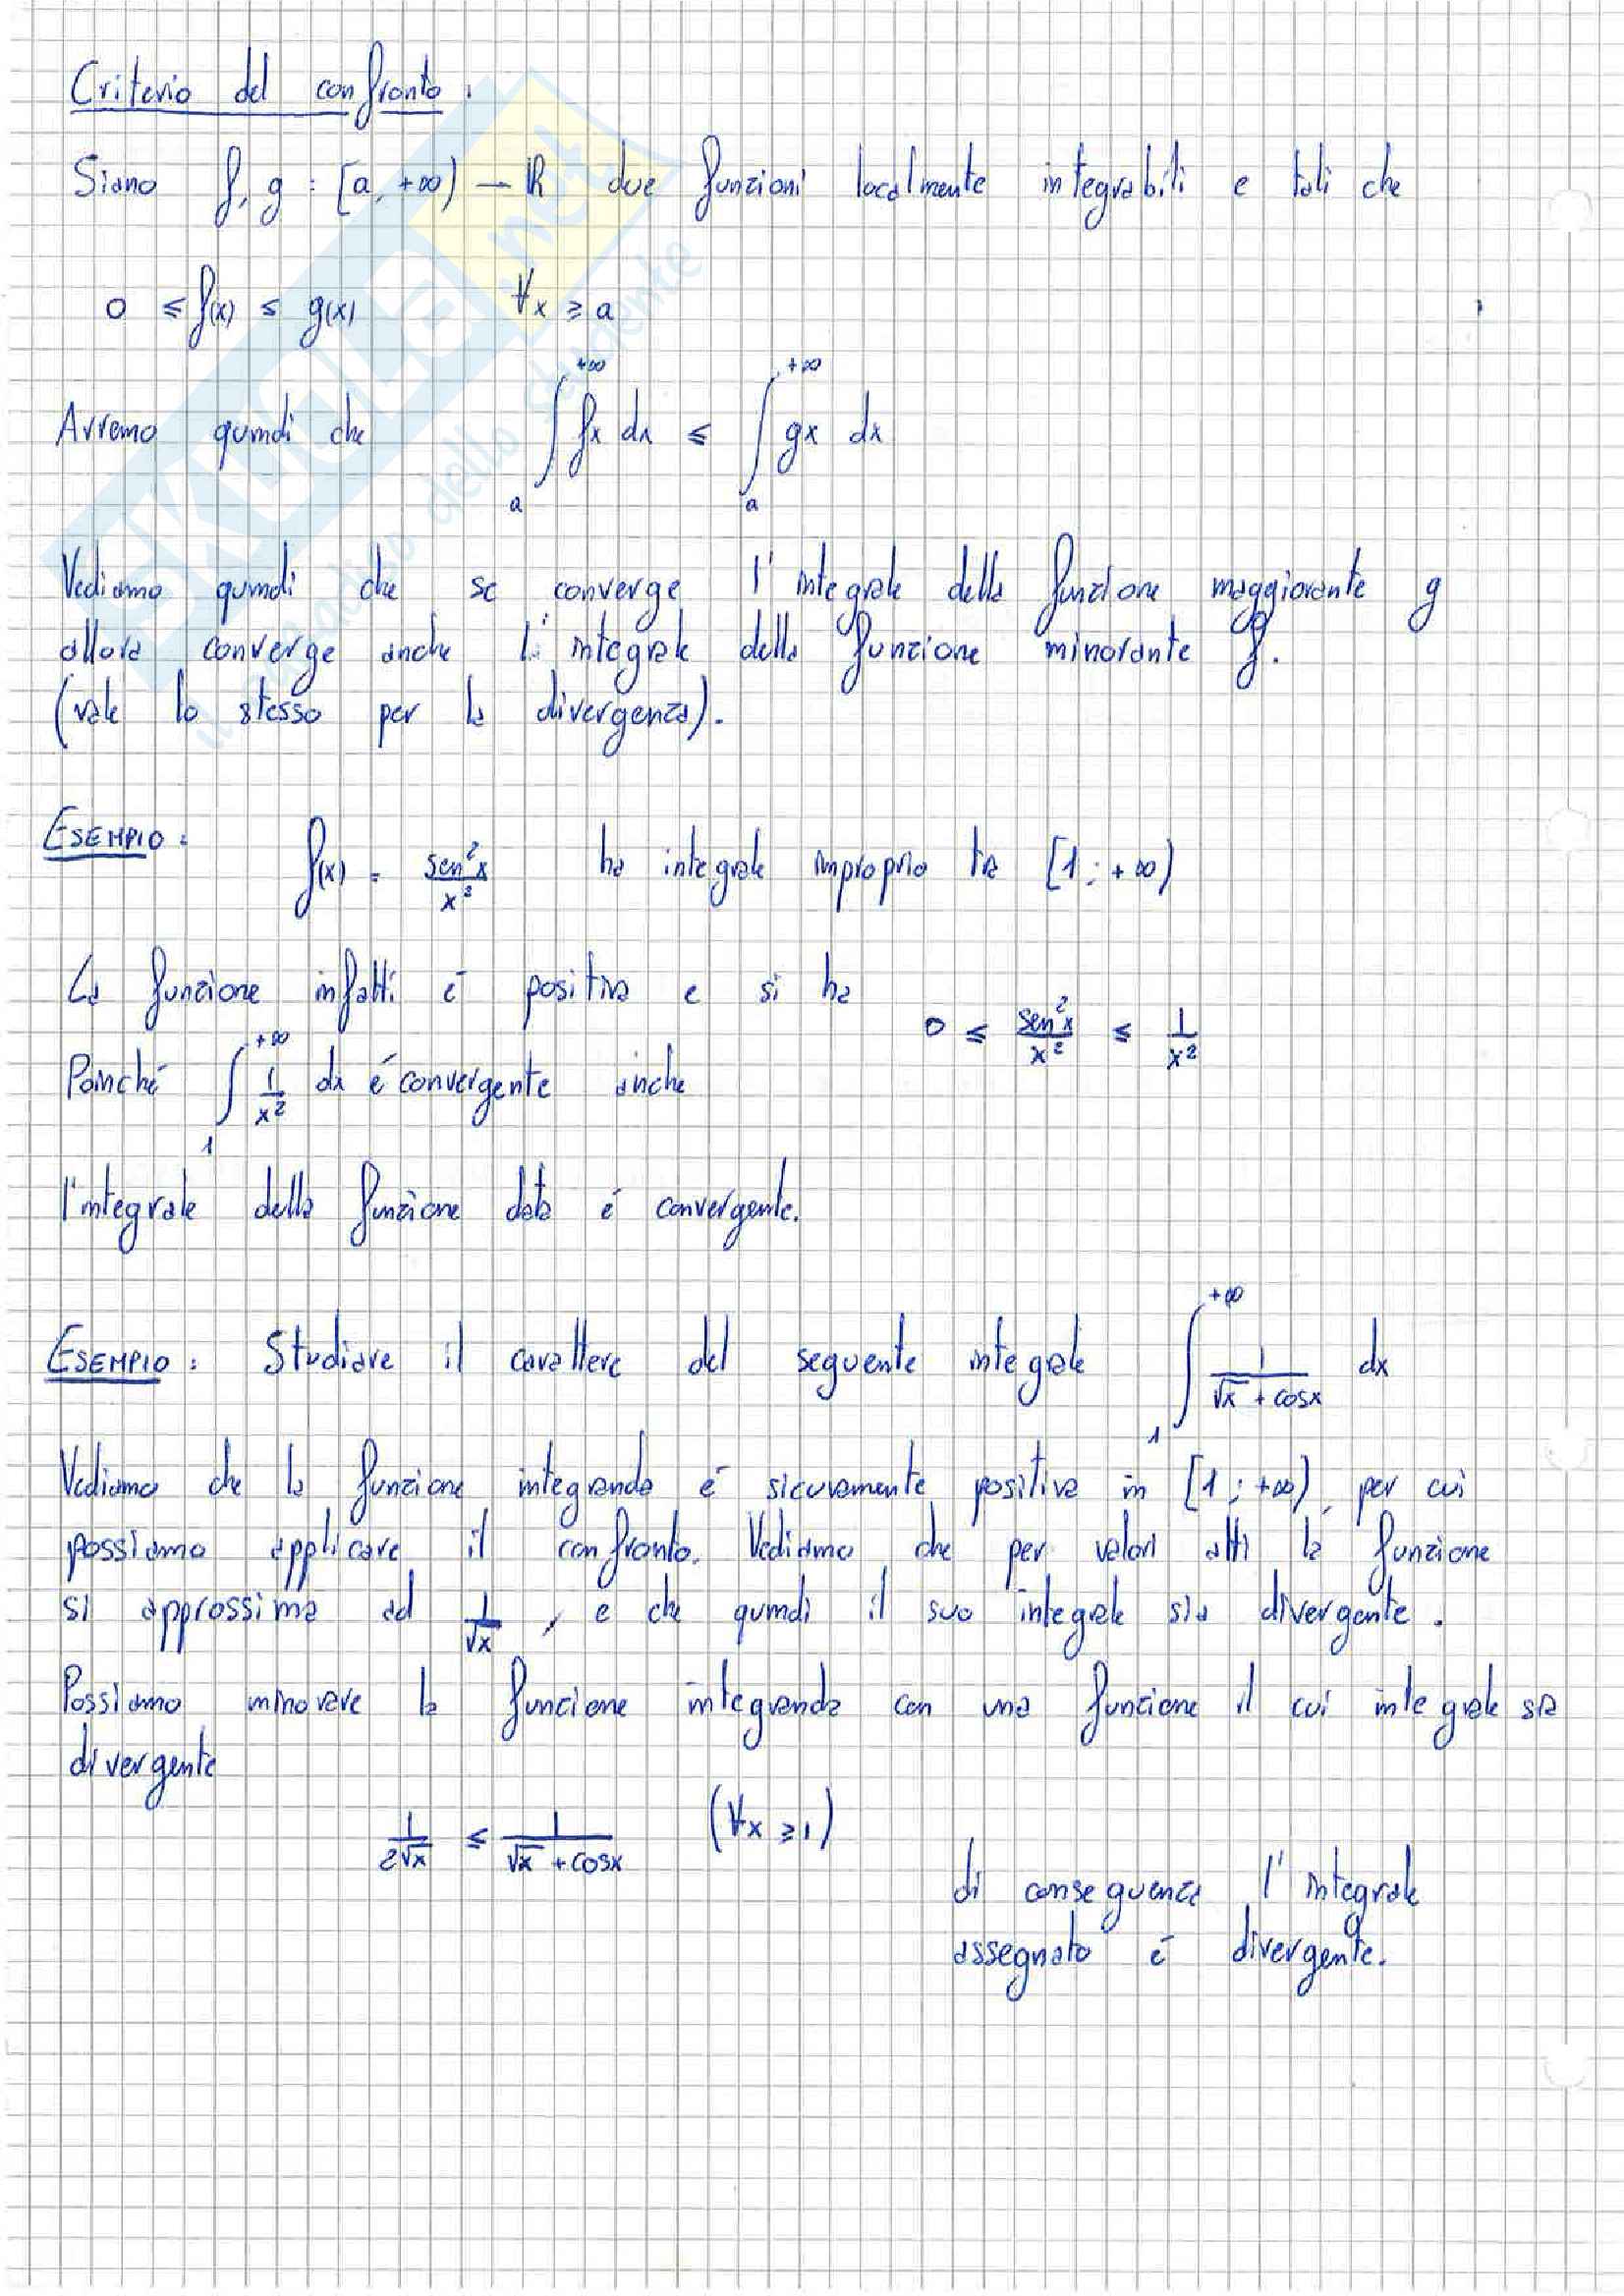 Criterio del confronto:
Siano f, g : [a, +∞) → ℝ due funzioni localmente integrabili e tali che
0 ≤ f(x) ≤ g(x) ∀x ≥ a
Avremo quindi che ∫_a^{+∞} fx dx ≤ ∫_a^{+∞} gx dx
Vediamo quindi che se converge l'integrale della funzione maggiorante g
allora converge anche l'integrale della funzione minorante f.
(vale lo stesso per la divergenza).
ESEMPIO: f(x) = sen²x/x² ha integrale improprio tra [1; +∞)
La funzione infatti é positiva e si ha 0 ≤ sen²x/x² ≤ 1/x²
Poinché ∫_1^{+∞} 1/x² dx é convergente anche
l'integrale della funzione data é convergente.
ESEMPIO: Studiare il carattere del seguente integrale ∫_1^{+∞} 1/(√x + cosx) dx
Vediamo che la funzione integranda é sicuramente positiva in [1; +∞), per cui
possiamo applicare il confronto. Vediamo che per valori alti la funzione
si approssima ad 1/√x, e che quindi il suo integrale sia divergente.
Possiamo minorare la funzione integranda con una funzione il cui integrale sia
divergente
1/(2√x) ≤ 1/(√x + cosx) (∀x ≥ 1)
di conseguenza l'integrale
assegnato é divergente.
SKUOLA.net
il paradiso dello studente